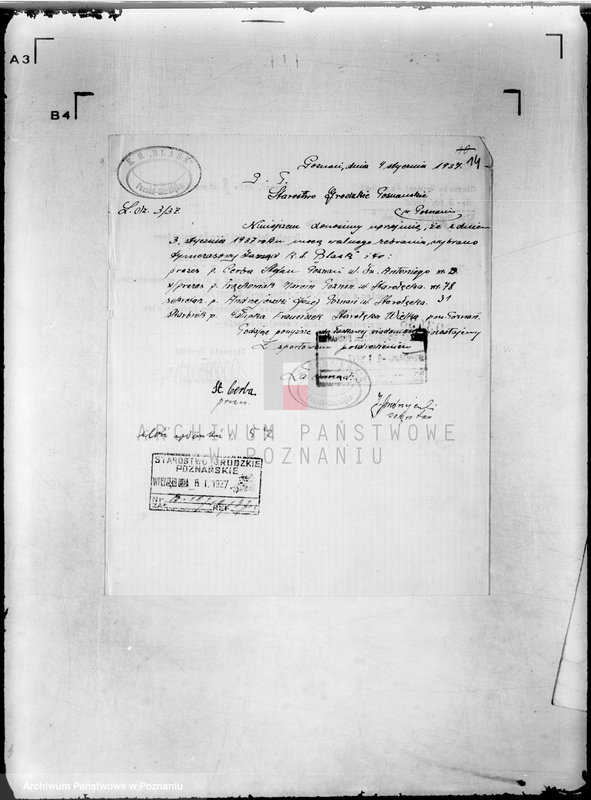 A3
B4
K.S. BLASK
Poznań-Starołęka
Poznań, dnia 4 stycznia 1937.
14
L. dz. 3/37.
Starostwo Grodzkie Poznańskie
w Poznaniu
Niniejszem donosimy uprzejmie, że z dniem
3. stycznia 1937 roku mocą walnego zebrania, wybrano
tymczasowy Zarząd K.S. "Blask" i to:
prezes p. Cerba Stefan Poznań ul. Św. Antoniego nr.
v/prezes p. Marcin Poznań ul. Starołęcka nr. 78
sekretar. p. Andrzejewski Poznań ul. Starołęcka 31
skarbnik p. Franciszek Starołęka Wielka pow. Poznań.
Podając powyższe do łaskawej wiadomości kreślimy
Ze sportowem pozdrowieniem
Za zarząd:
St. Cerba
prezes
sekretarz
ARCHIWUM PAŃSTWOWE
W POZNANIU
STAROSTWO GRODZKIE
POZNAŃSKIE
6 I. 1937
Nr.
ZAŁ. REF.
Archiwum Państwowe w Poznaniu